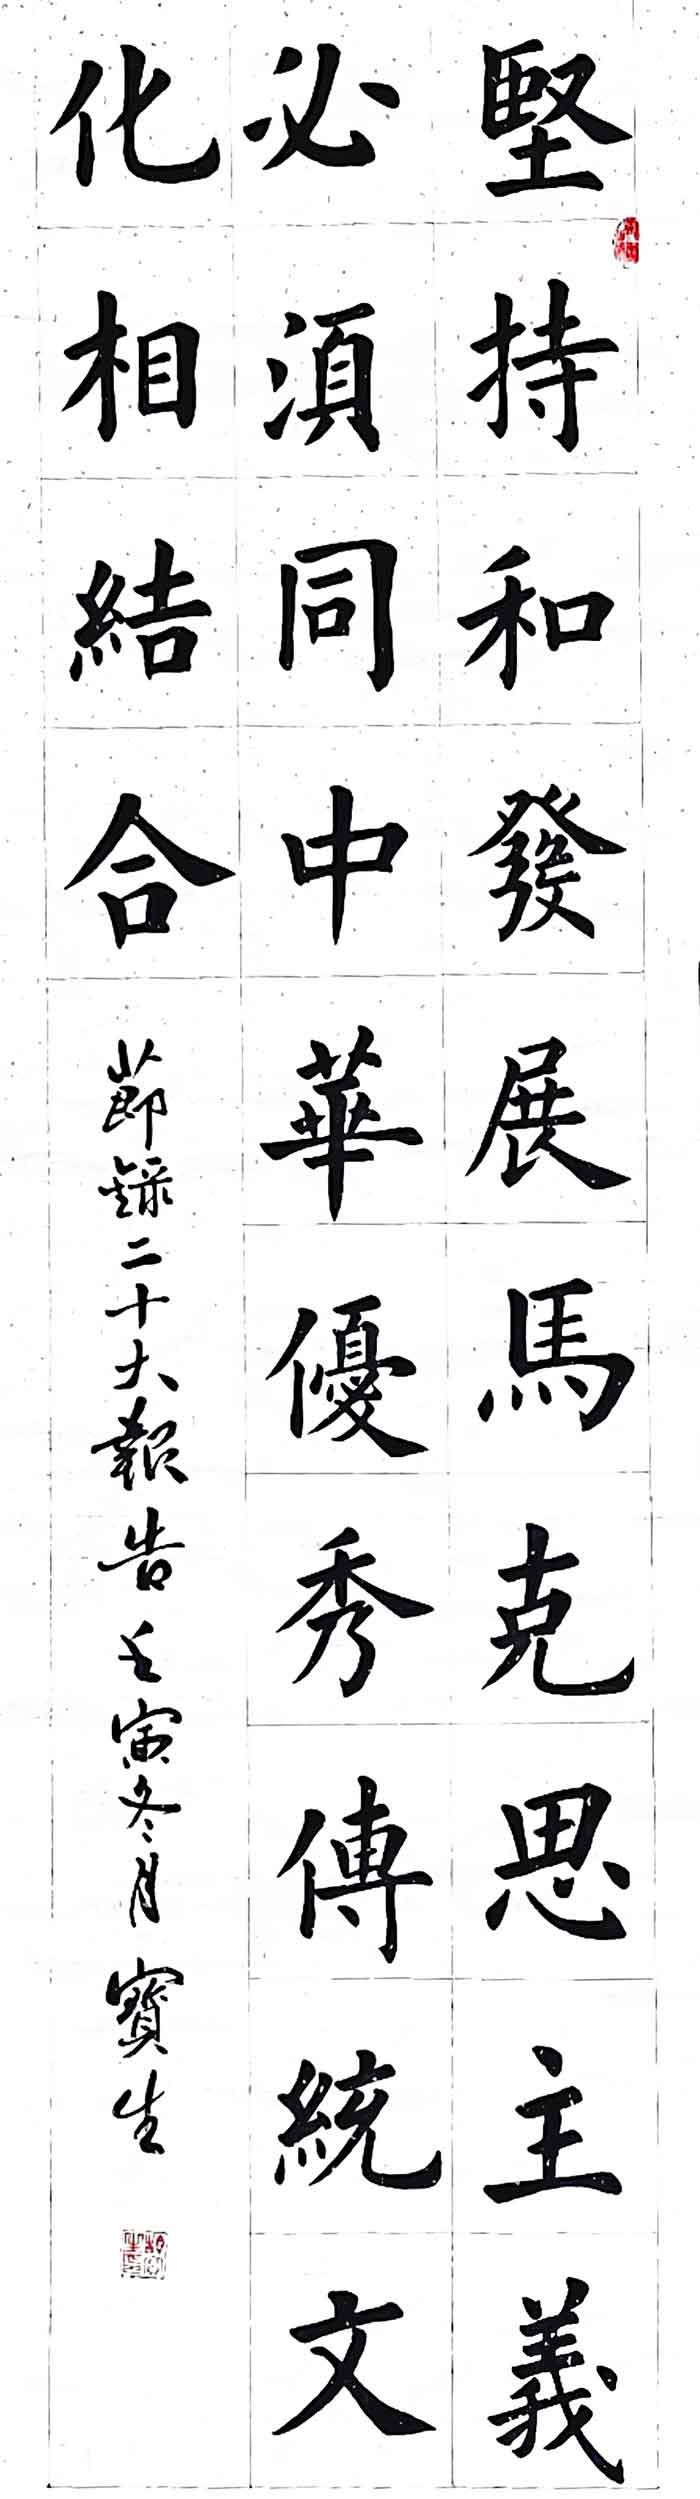 堅持和發展馬克思主義
必須同中華優秀傳統文
化相結合
節録二十大報告壬寅冬月寶生